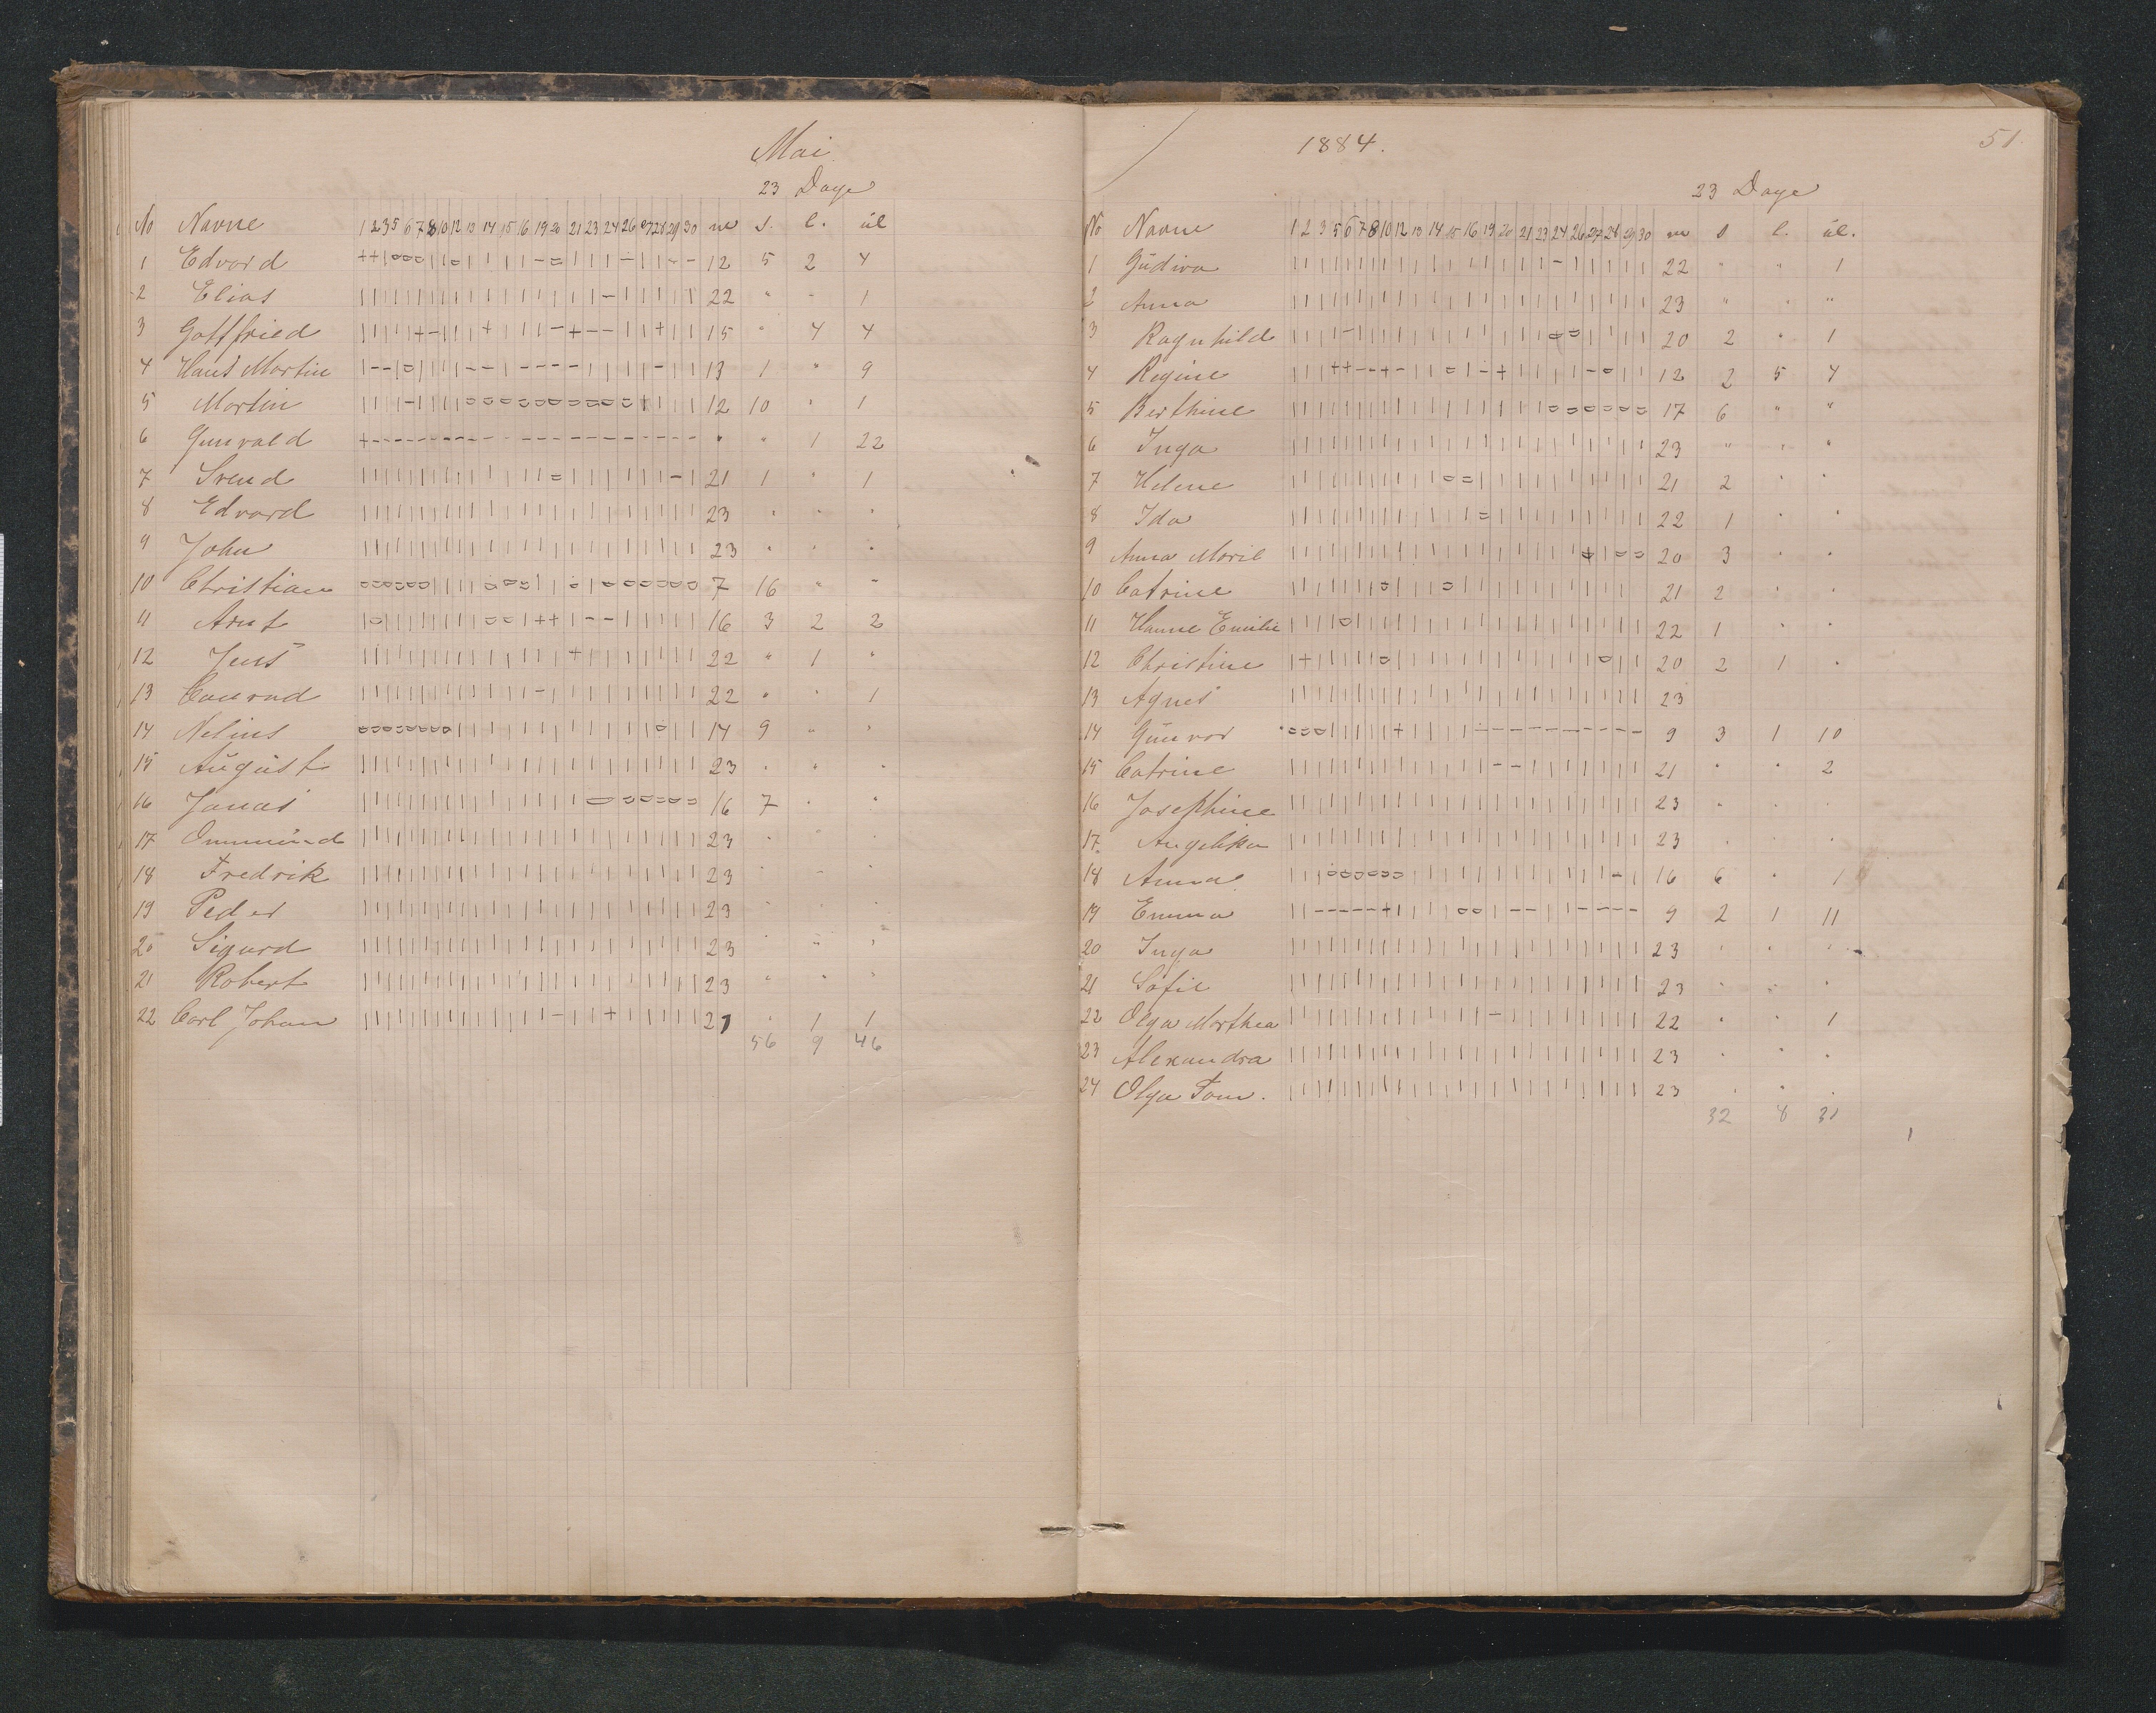 Mai
23 Dage
No Navne 1 2 3 5 6 7 8 10 12 13 14 15 16 19 20 21 23 24 26 27 28 29 30 m s. l. úl
1 Edvard 12 5 2 4
2 Elias 22 " - 1
3 Gottfried 15 " 4 4
4 Hans Martin 13 1 " 9
5 Martin 12 10 " 1
6 Gunvald " " 1 22
7 Svend 21 1 " 1
8 Edvard 23 " " "
9 John 23 " " "
10 Christian 7 16 " "
11 Arnt 16 3 2 2
12 Jens 22 " 1 "
13 Conrad 22 " " 1
14 Nelius 14 9 " "
15 August 23 " " "
16 Jonas 16 7 " "
17 Ommund 23 " " "
18 Fredrik 23 " " "
19 Peder 23 " " "
20 Sigurd 23 " " "
21 Robert 23 " " "
22 Carl Johan 21 " 1 1
56 9 46
1884.
51.
23 Dage
No Navne 1 2 3 5 6 7 8 10 12 13 14 15 16 19 20 21 23 24 26 27 28 29 30 m s l. úl.
1 Gúdiva 22 " " 1
2 Anna 23 " " "
3 Ragnhild 20 2 " 1
4 Regine 12 2 5 4
5 Berthine 17 6 " "
6 Inga 23 " " "
7 Helene 21 2 " "
8 Ida 22 1 " "
9 Anna Marie 20 3 " "
10 Catrine 21 2 " "
11 Hanne Emilie 22 1 " "
12 Christine 20 2 1 "
13 Agnes 23
14 Gúnvor 9 3 1 10
15 Catrine 21 " " 2
16 Josephine 23 " " "
17. Angelika 23 " " "
18 Anna 16 6 " 1
19 Emma 9 2 1 11
20 Inga 23 " " "
21 Sofie 23 " " "
22 Olga Marthea 22 " " 1
23 Alexandra 23 " " "
24 Olga Tom. 23 " " "
32 8 31